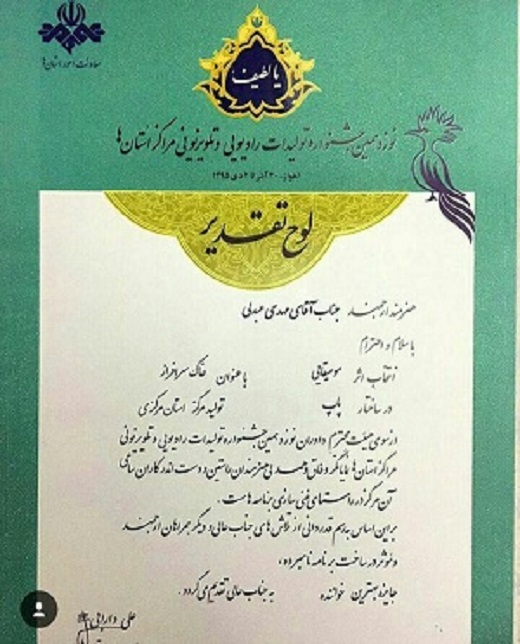 معاونت امور استان ها
یا لطیف
نوزدهمین جشنواره تولیدات رادیویی و تلویزیونی مراکز استان ها
اهواز - ۳۰ آذر تا ۴ دی ۱۳۹۵
لوح تقدیر
هنرمند ارجمند جناب آقای مهدی عبدلی
با سلام و احترام
انتخاب اثر موسیقایی با عنوان خاک سرافراز
در ساختار پاپ تولید مرکز استان مرکزی
از سوی هیئت محترم داوران نوزدهمین جشنواره تولیدات رادیویی و تلویزیونی
مراکز استان ها بیانگر وفاق و همدلی هنرمندان راستین و دست اندرکاران تمامی
آن مرکز در راستای غنی سازی برنامه هاست.
بر این اساس به رسم قدردانی از تلاش های جناب عالی و دیگر همراهان ارجمند
و موثر در ساخت برنامه نامبرده،
جایزه بهترین خواننده به جناب عالی تقدیم می گردد.
علی دارابی